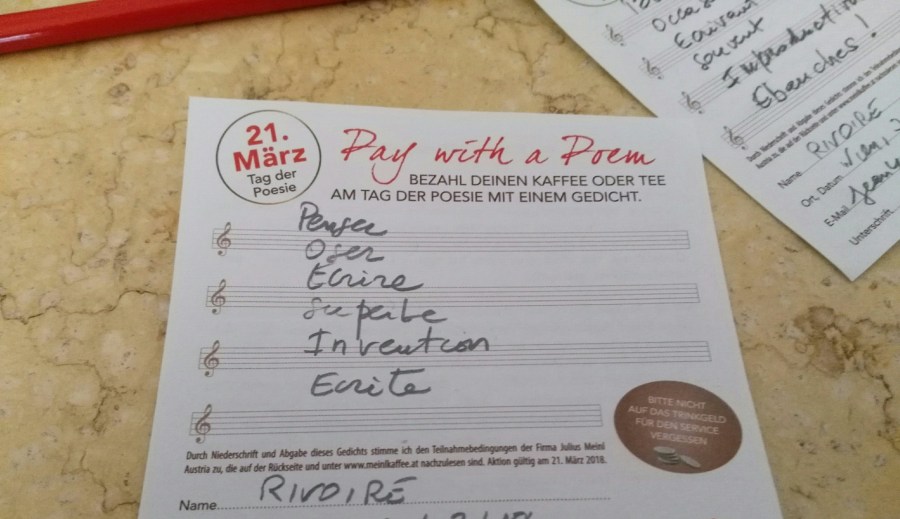 21.
März
Tag der
Poesie
Pay with a Poem
BEZAHL DEINEN KAFFEE ODER TEE
AM TAG DER POESIE MIT EINEM GEDICHT.
Penser
Oser
Ecrire
Superbe
Invention
Ecrite
BITTE NICHT
AUF DAS TRINKGELD
FÜR DEN SERVICE
VERGESSEN
Durch Niederschrift und Abgabe dieses Gedichts stimme ich den Teilnahmebedingungen der Firma Julius Meinl
Austria zu, die auf der Rückseite und unter www.meinlkaffee.at nachzulesen sind. Aktion gültig am 21. März 2018.
Name RIVOIRE
Ecrivant
souvent
Improductives
Ebauches!
Durch Niederschrift und Abgabe dieses Gedichts stimme ich den Teilnahmebedingungen
Austria zu, die auf der Rückseite und unter www.meinlkaffee.at
Name RIVOIRE
Ort, Datum
E-Mail
Unterschrift